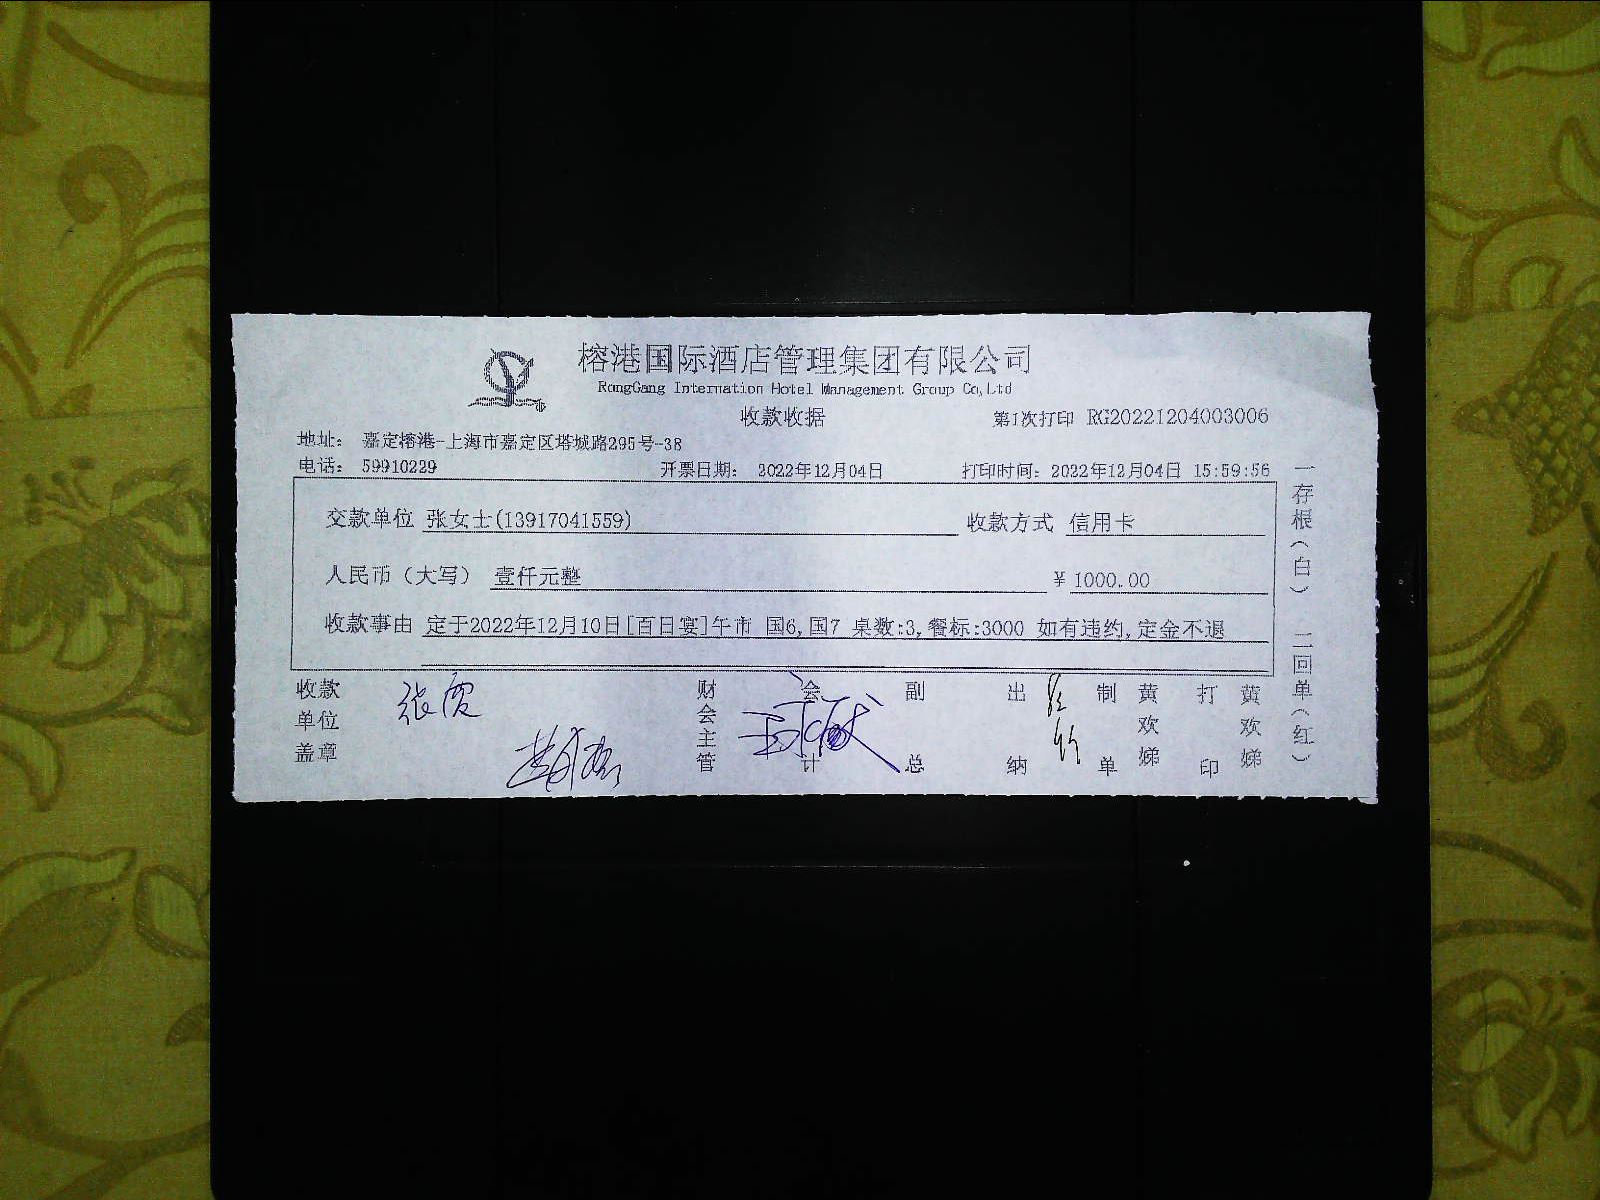 榕港国际酒店管理集团有限公司
RongGang Internation Hotel Management Group Co,Ltd
收款收据
第1次打印 RG20221204003006
地址： 嘉定榕港-上海市嘉定区塔城路295号-38
电话： 59910229 开票日期： 2022年12月04日 打印时间： 2022年12月04日 15:59:56
交款单位 张女士(13917041559) 收款方式 信用卡
人民币（大写） 壹仟元整 ￥1000.00
收款事由 定于2022年12月10日[百日宴]午市 国6,国7 桌数:3,餐标:3000 如有违约,定金不退
收款单位盖章 财会主管 会计 副总 出纳 制单 黄欢娣 打印 黄欢娣
一存根（白） 二回单（红）